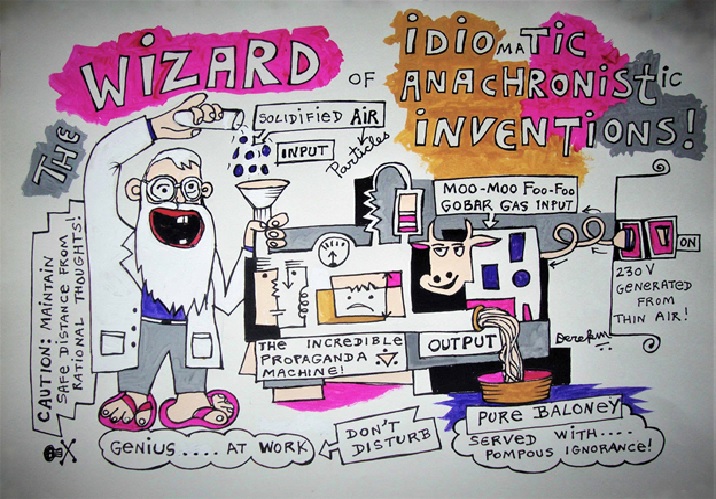 THE
WIZARD OF
IDIOMATIC
ANACHRONISTIC
INVENTIONS!
SOLIDIFIED AIR
Particles
INPUT
MOO-MOO FOO-FOO
GOBAR GAS INPUT
ON
230V
GENERATED
FROM
THIN AIR!
CAUTION: MAINTAIN
SAFE DISTANCE FROM
RATIONAL THOUGHTS!
THE INCREDIBLE
PROPAGANDA
MACHINE!
OUTPUT
GENIUS ..... AT WORK
DON'T
DISTURB
PURE BALONEY
SERVED WITH....
POMPOUS IGNORANCE!